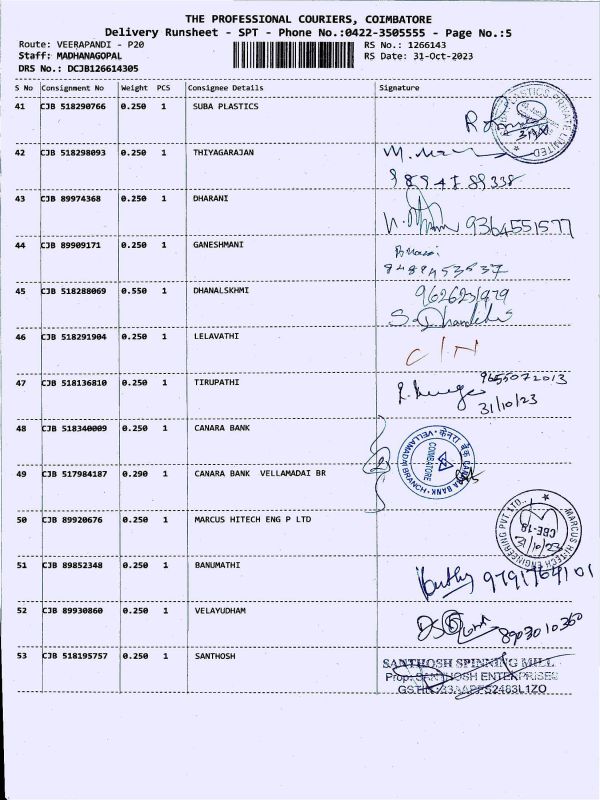 THE PROFESSIONAL COURIERS, COIMBATORE
Delivery Runsheet - SPT - Phone No.:0422-3505555 - Page No.:5
Route: VEERAPANDI - P20
RS No.: 1266143
Staff: MADHANAGOPAL
RS Date: 31-Oct-2023
DRS No.: DCJB126614305
S No Consignment No Weight PCS Consignee Details Signature
41 CJB 518290766 0.250 1 SUBA PLASTICS
42 CJB 518298093 0.250 1 THIYAGARAJAN
43 CJB 89974368 0.250 1 DHARANI
9364551577
44 CJB 89909171 0.250 1 GANESHMANI
45 CJB 518288069 0.550 1 DHANALSKHMI
9626231979
46 CJB 518291904 0.250 1 LELAVATHI
47 CJB 518136810 0.250 1 TIRUPATHI
9655072013
31/10/23
48 CJB 518340009 0.250 1 CANARA BANK
49 CJB 517984187 0.290 1 CANARA BANK VELLAMADAI BR
केनरा बैंक CANARA BANK
VELLAMADAI BRANCH
COIMBATORE
50 CJB 89920676 0.250 1 MARCUS HITECH ENG P LTD
MARCUS HI-TECH ENGINEERING PVT LTD.,
CBE-18
31/10/23
51 CJB 89852348 0.250 1 BANUMATHI
9791764101
52 CJB 89930860 0.250 1 VELAYUDHAM
8903010360
53 CJB 518195757 0.250 1 SANTHOSH
SANTHOSH SPINNING MILL
Prop: SANTHOSH ENTERPRISES